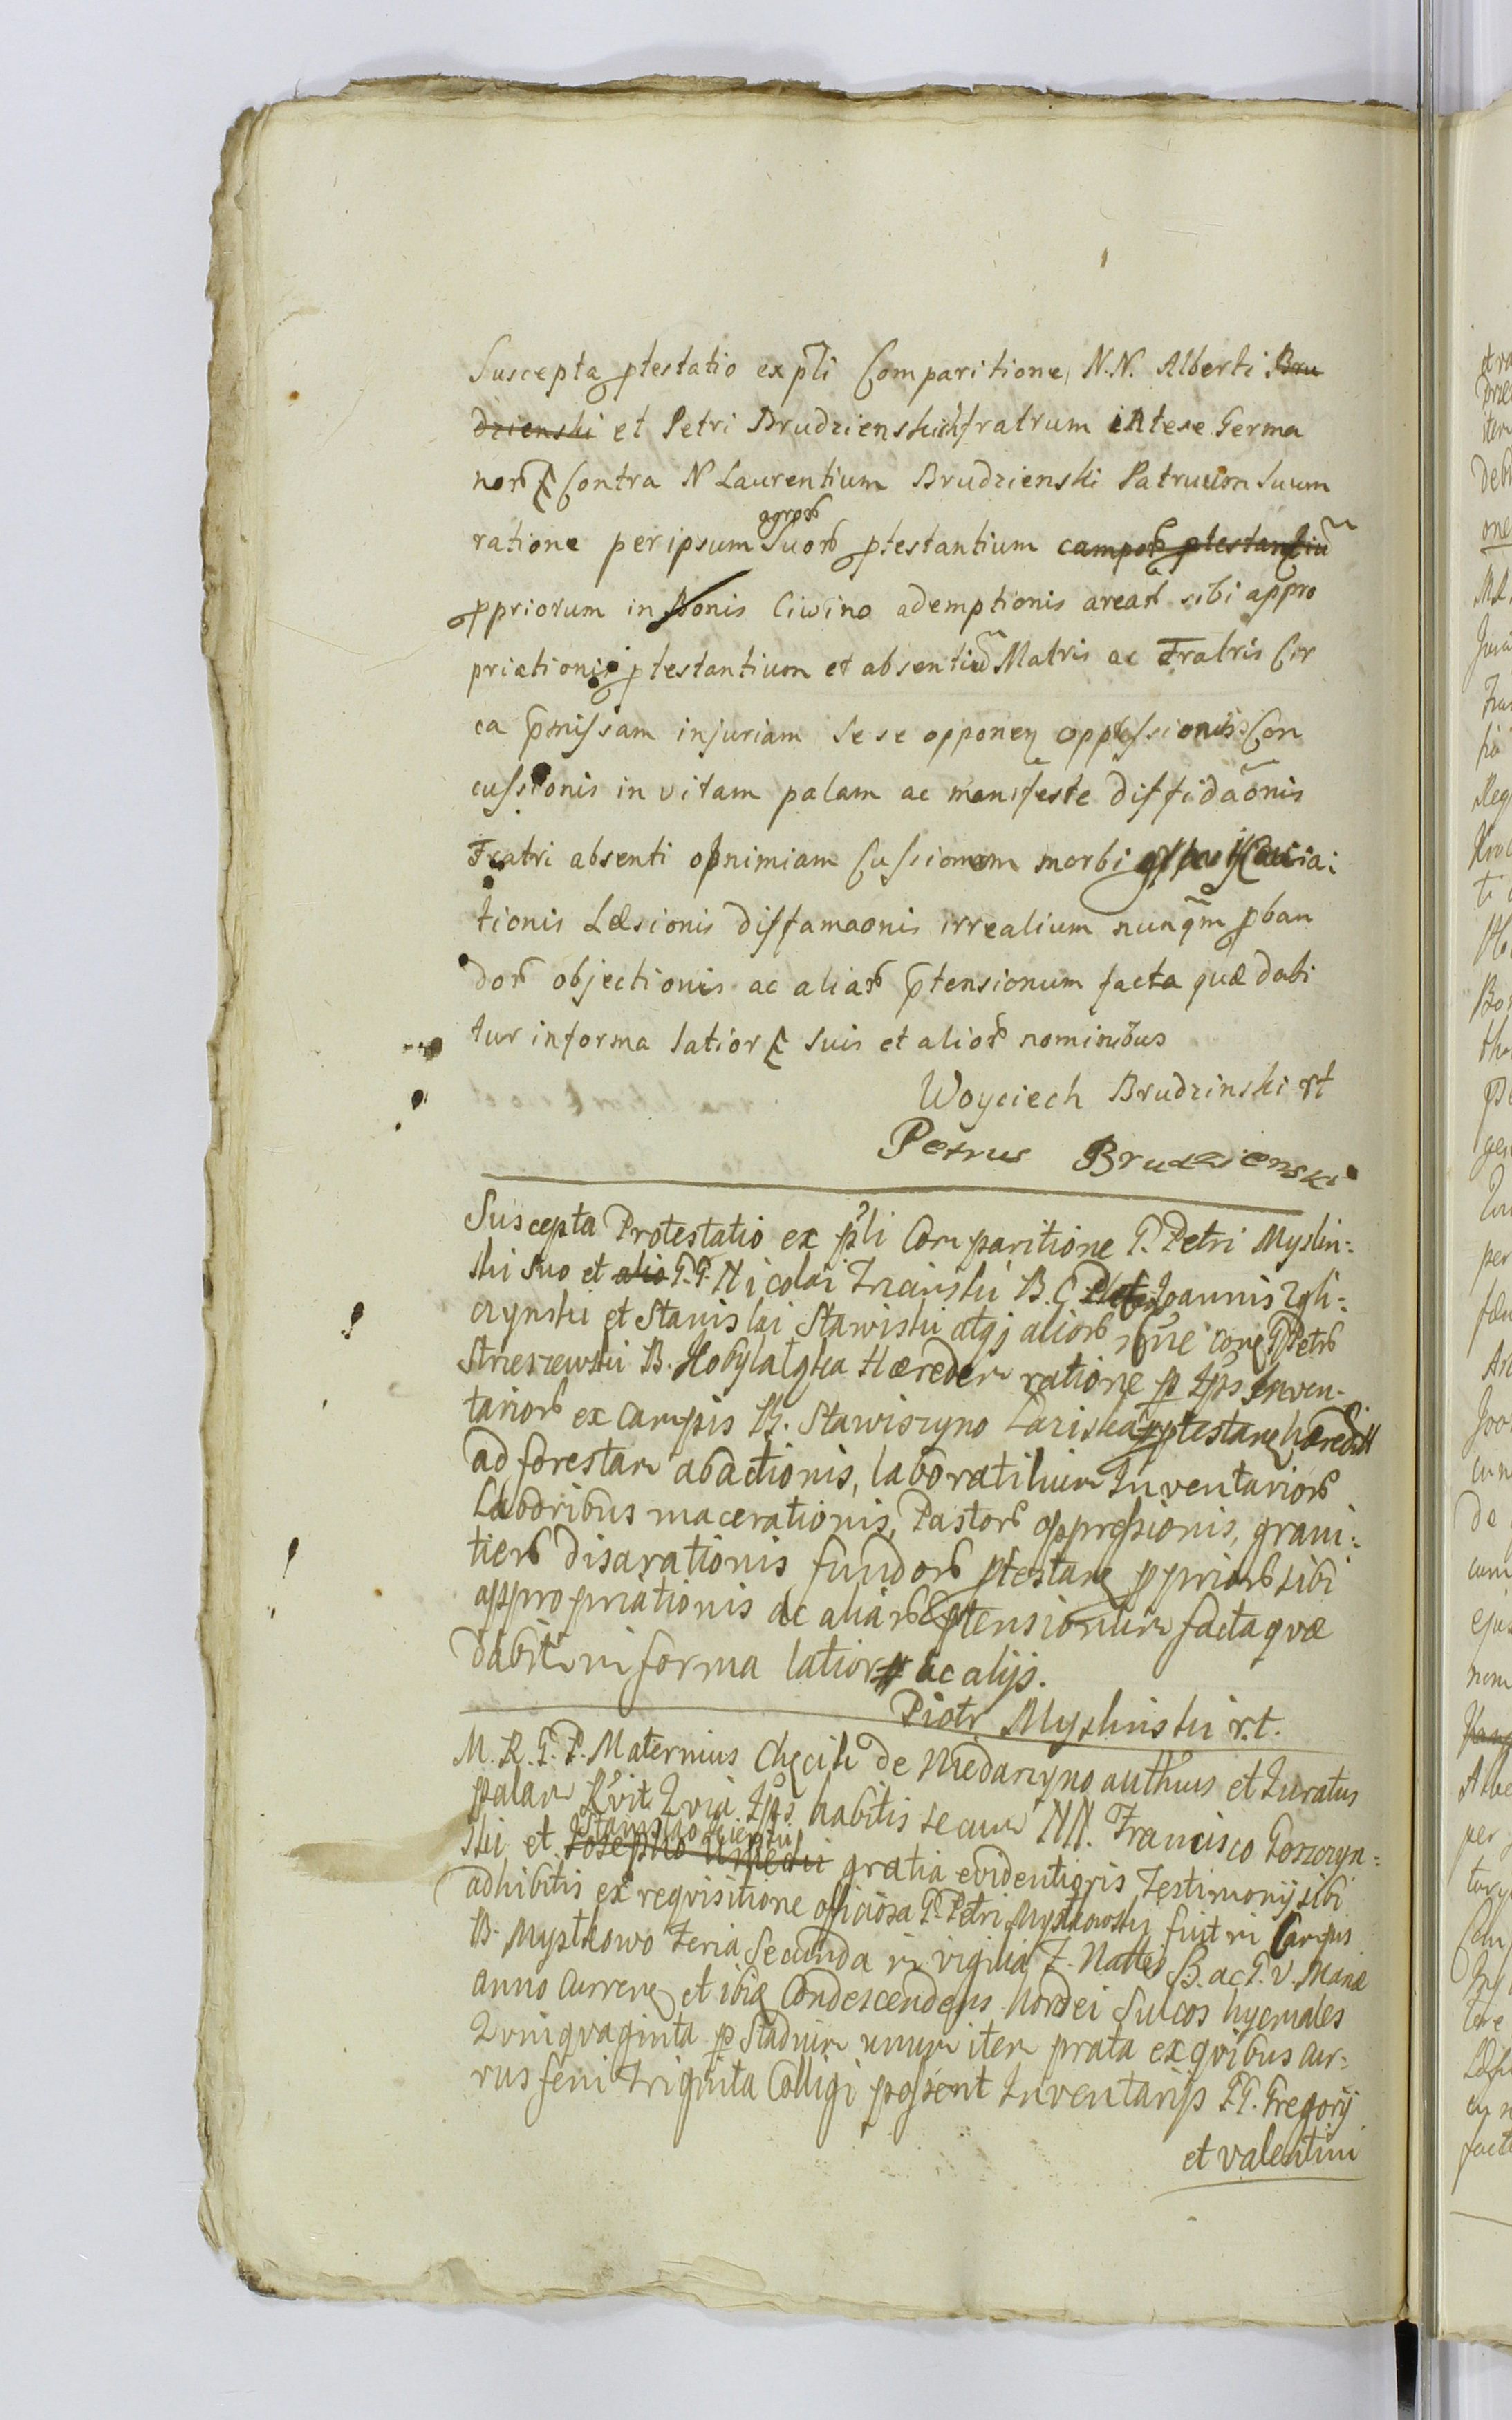 Suscepta ptestatio ex pñli Comparitione N.N. Alberti Bru
dzienski et Petri Brudzienskich fratrum intese Germa
nor Contra N Laurentium Brudzienski Patruum Suum
ratione per ipsum agror Suor ptestantium campor ptestantiu
ppriorum in Bonis Ciwino ademptionis arear sibi appro
priationis ptestantium et absentiu Matris ac Fratris Cir
ca pmissam injuriam sese opponen oppressionis Con
cussionis in vitam palam ac manifeste diffidaonis
Fratri absenti ob nimiam Cussionem morbi
tionis Læsionis diffamaonis irrealium nunqm pban
dor objectionis ac aliar ptensionum facta quæ dabi
tur in forma latior suis et alior nominibus
Woyciech Brudzinski rt
Petrus Brudzienski
Suscepta Protestatio ex pñli Comparitione G. Petri Myslin-
ski suo et alio G.G. Nicolai Trcinski B. G. Joannis Zgli-
czynski et Stanislai Stawiski atqj alior nõie con G Petr
Strzeszewski B. Kobylatqka Hæredem ratione p Ips Inven-
tarior ex Campis B. Stawiszyno Laziska ptestan hæredit
ad forestam abactionis, laboratilium Inventarior
Laboribus macerationis, Pastor oppressionis, grani-
tier disarationis fundor ptestan pprior sibi
appropriationis ac aliar ptensionum facta qvæ
dabitr in forma latior ac alijs.
Piotr Myslinski r.t.
M. R. G. P. Maternius Chęcik de Niedarzyno authus et Juratus
palam Rvit Qvia Ips habitis secum NN. Francisco Goszczyn-
ski et Stanislao Josepho gratia evidentioris Testimonij sibi
adhibitis ex requisitione officiosa G. Petri Mystkowski fuit in Campis
B. Mystkowo Feria Secunda in vigilia F. Nattis B. ac G. V. Mariæ
anno Curren et ibiq Condescendens hordei Sulcos hyemales
Qvinqvaginta p Stadium unum item prata ex qvibus cur-
rus feni Triginta Colligi possent Inventarijs GG. Gregorij
et Valentini